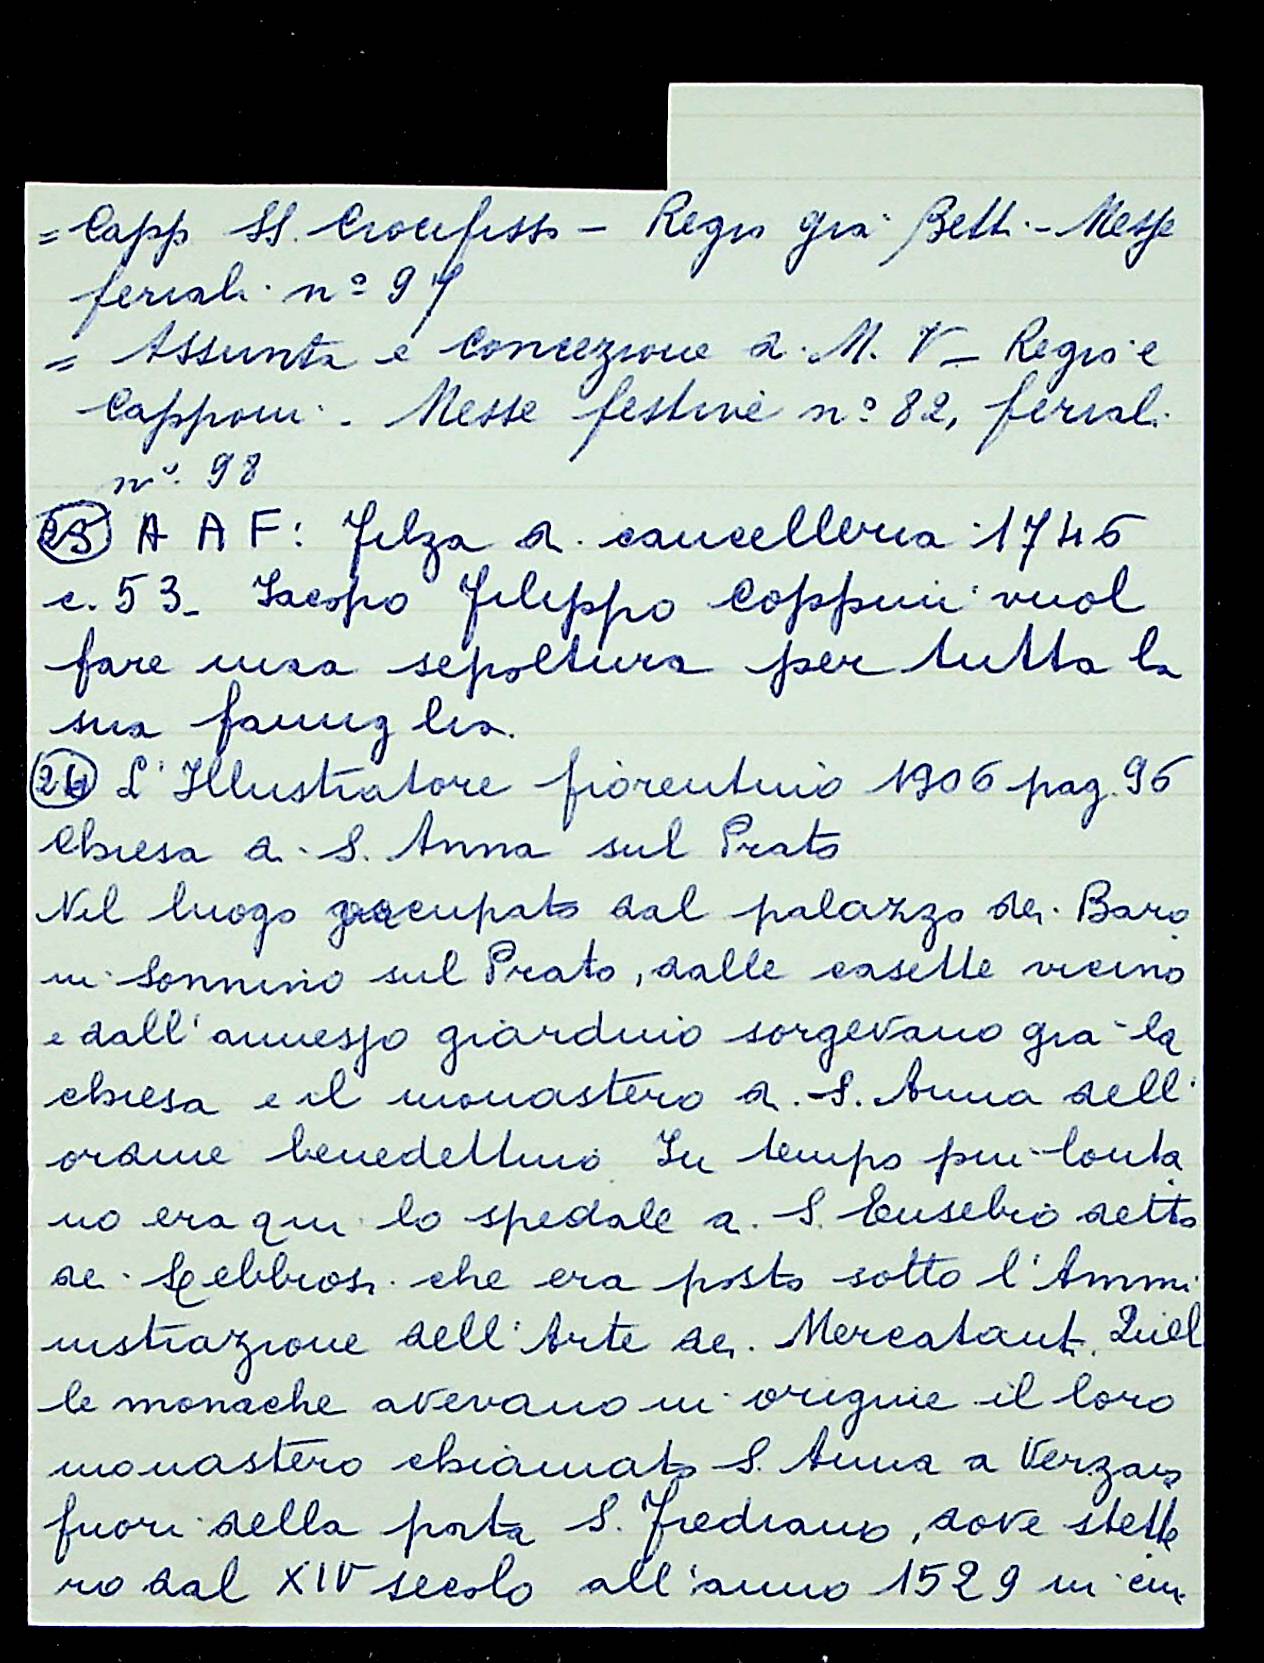 = Capp SS. Crocifisso - Regio già Betti - Messe
feriali n° 97
= Assunta e Concezione di M. V - Regio e
Capponi - Messe festive n° 82, feriali
n° 98
A A F: Filza di cancelleria 1746
c. 53 - Iacopo Filippo Coppini vuol
fare una sepoltura per tutta la
sua famiglia.
24 L'Illustratore fiorentino 1906 pag. 96
Chiesa di S. Anna sul Prato
Nel luogo occupato dal palazzo dei Baro
ni Sonnino sul Prato, dalle casette vicino
e dall'annesso giardino sorgevano già la
chiesa e il monastero di S. Anna dell'
ordine benedettino In tempo più lonta
no era qui lo spedale di S. Eusebio detto
dei Lebbrosi che era posto sotto l'Ammi
nistrazione dell'Arte dei Mercatanti. Quel
le monache avevano in origine il loro
monastero chiamato S. Anna a Verzaia
fuori della porta S. Frediano, dove stette
ro dal XIV secolo all'anno 1529 in cui